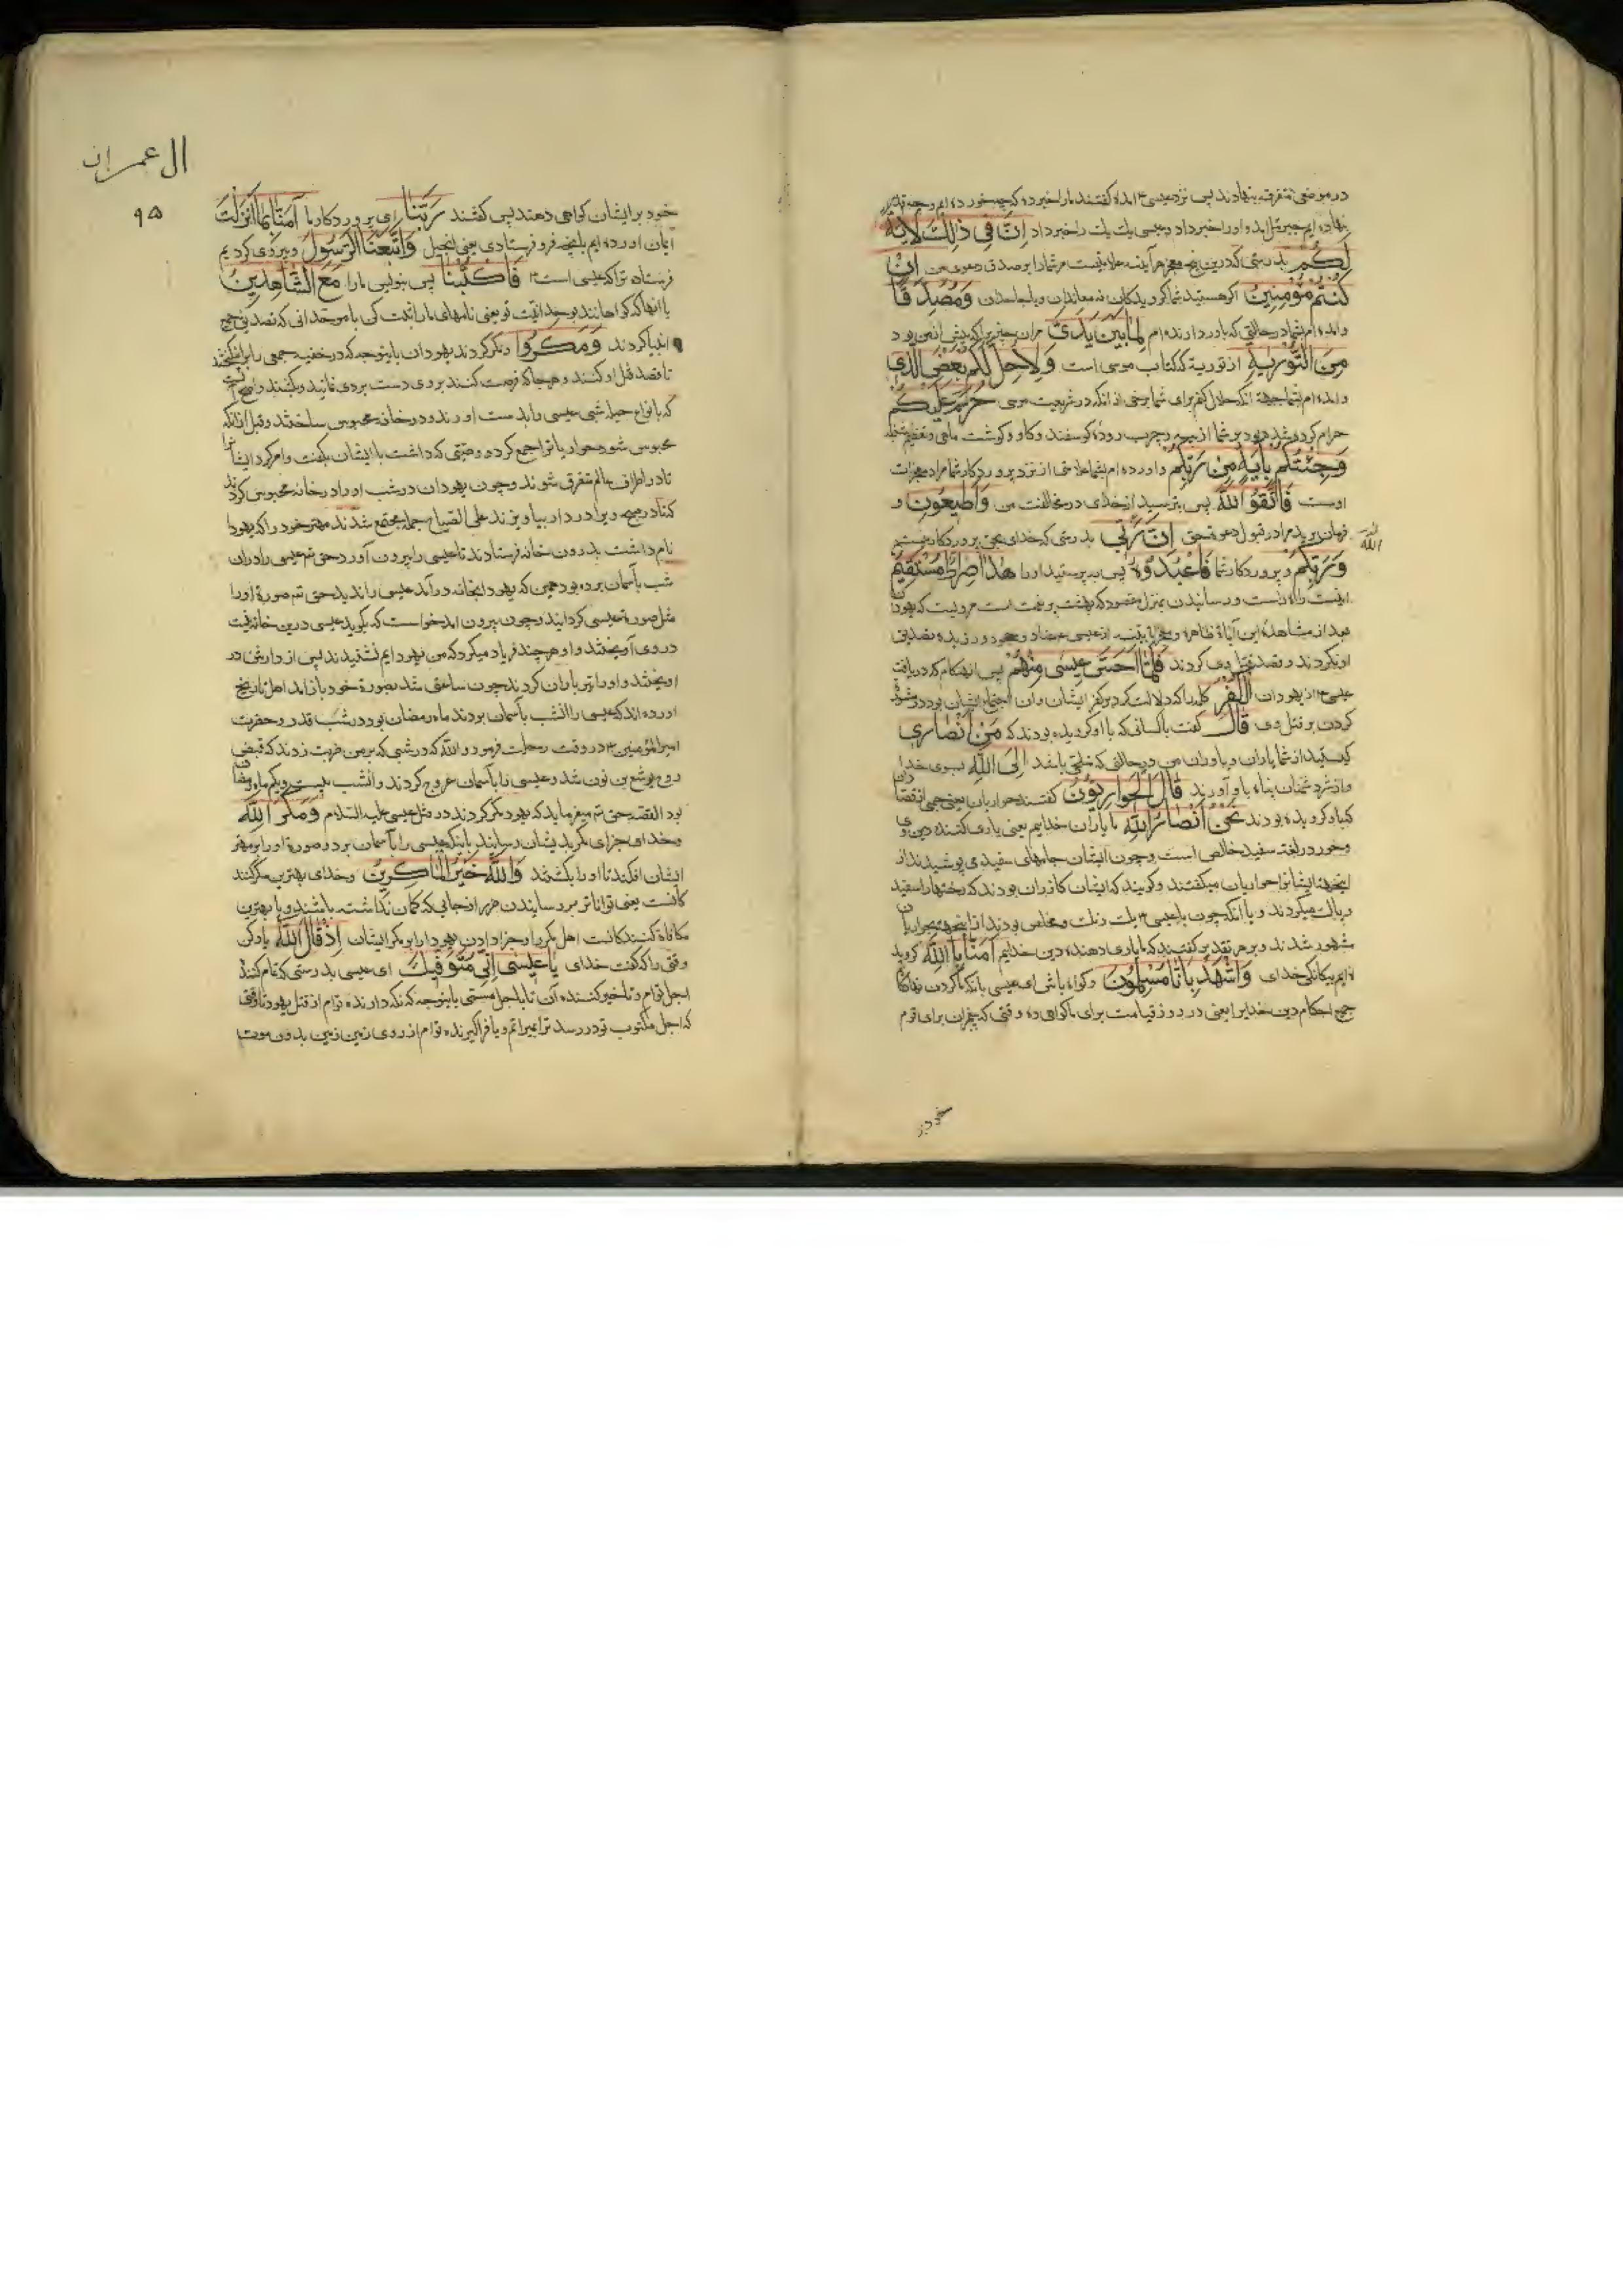 در موضعی متفرقه بنهادند پس نزد عیسی ع آمده گفتند ما را خبر ده که چه خورده‌ایم و چه
نهاده‌ایم جبرئیل آمد و او را خبر داد و عیسی یك یك را خبر داد اِنَّ فِي ذٰلِكَ لَاٰيَةً
لَكُمْ بدرستی که درین معجزه هرآینه علامتیست مر شما را بر صدق دعوی من اِنْ
كُنْتُمْ مُؤْمِنِينَ اگر هستید شما گرویدگان نه معاندان وَمُصَدِّقًا
و آمده‌ام بشما در حالتی که باور دارنده‌ام لِمَا بَيْنَ يَدَيَّ مر آن چیزی را که پیش از من بود
مِنَ التَّوْرٰيةِ از توریة که کتاب موسی است وَلِاُحِلَّ لَكُمْ بَعْضَ الَّذِي
و آمده‌ام بشما بجهة آنکه حلال کنم برای شما برخی از آنکه در شریعت موسی حُرِّمَ عَلَيْكُمْ
حرام کرده شده بود بر شما از پیه و چرب روده گوسفند و گاو و گوشت ماهی
وَجِئْتُكُمْ بِاٰيَةٍ مِنْ رَبِّكُمْ و آورده‌ام بشما علامتی از نزد پروردگار شما مراد معجزات
اوست فَاتَّقُوا اللّٰهَ پس بترسید از خدای در مخالفت من وَاَطِيعُونِ و
فرمان برید مرا در قبول دعوة حق اِنَّ رَبِّي بدرستی که خدای بحق پروردگار منست
اللّٰهَ
وَرَبُّكُمْ و پروردگار شما فَاعْبُدُوهُ پس بپرستید او را هٰذَا صِرَاطٌ مُسْتَقِيمٌ
اینست راه راست و رساننده بمنزل مقصود که بهشت پر نعمت است مرویست که یهودان
بعد از مشاهده این آیات ظاهره از عیسی عناد و جحود ورزیده تصدیق
او نکردند و قصد قتل وی کردند فَلَمَّا اَحَسَّ عِيسٰى مِنْهُمُ پس آن هنگام که دریافت
عیسی ع از یهودان الْكُفْرَ کلمه را که دلالت کرد بر کفر ایشان و آن اجتماع ایشان بود
کردن بر قتل وی قَالَ گفت با کسانی که با او گرویده بودند که مَنْ اَنْصَارِي
کیستید از شما یاران و یاوران من در حالتی که ملتجی باشد اِلَى اللّٰهِ بسوی خدا
و از شر دشمنان پناه باو آورند قَالَ الْحَوَارِيُّونَ گفتند حواریان یعنی جمعی از قصاران
که باو گرویده بودند نَحْنُ اَنْصَارُ اللّٰهِ ما یاران خداییم یعنی یاری کننده دین وی
و حور در لغة سفید خالص است و چون ایشان جامهای سفید می پوشیدند از
اینجهة ایشان را حواریان میگفتند و گویند که ایشان گازران بودند که رختها را سفید
و پاك میکردند و یا آنکه چون با عیسی ع یك دل و مخلص بودند ازینجهة بحواریان
مشهور شدند و بر هر تقدیر گفتند که ما یاری دهنده دین خداییم اٰمَنَّا بِاللّٰهِ گروید
ه‌ایم بیگانگی خدای وَاشْهَدْ بِاَنَّا مُسْلِمُونَ و گواه باش ای عیسی بآنکه ما گردن نهادگان
جمیع احکام دین خداییم یعنی در روز قیامت برای ما گواهی ده وقتی که پیغمبران برای قوم
خود بر
ال عمران
۹۵
خود بر ایشان گواهی دهند پس گفتند رَبَّنَا ای پروردگار ما اٰمَنَّا بِمَا اَنْزَلْتَ
ایمان آورده‌ایم بآنچه فرو فرستادی یعنی انجیل وَاتَّبَعْنَا الرَّسُولَ و پیروی کردیم
فرستاده ترا که عیسی است فَاكْتُبْنَا پس بنویس ما را مَعَ الشَّاهِدِينَ
با آنها که گواهانند بوحدانیت تو یعنی نامهای ما را ثبت کن با موحدانی که تصدیق جمیع
انبیا کردند وَمَكَرُوا و مکر کردند یهودان باینوجه که در خفیه جمعی را برانگیختند
تا قصد قتل او کنند و هرجا که فرصت کنند بر وی دست بردی نمایند و بکشند
که بانواع حیله شبی عیسی را بدست آورند و در خانه محبوس ساختند و قبل از آنکه
محبوس شود حواریان را جمع کرده وصیتی که داشت با ایشان بگفت و امر کرد ایشان را
تا در اطراف عالم متفرق شوند و چون یهودان در شب او را در خانه محبوس کردند
که تا در صبح ویرا در دار بیاویزند علی الصباح جمله مجتمع شدند مهتر خود را که یهودا
نام داشت بدرون خانه فرستادند تا عیسی را بیرون آورد حق تع عیسی را در آن
شب بآسمان برده بود همین که یهودا بخانه درآمد عیسی را ندید حق تع صورة او را
مثل صورة عیسی گردانید و چون بیرون آمد خواست که بگوید عیسی درین خانه نیست
در وی آویختند و او هر چند فریاد میکرد که من یهودایم نشنیدند پس از دارش در
آویختند و او را تیر باران کردند چون ساعتی شد بصورة خود باز آمد اهل تاریخ
آورده‌اند که عیسی را آنشب بآسمان بردند ماه رمضان بود در شب قدر و حضرت
امیر المؤمنین ع در وقت رحلت فرمود والله که در شبی که بر من ضربت زدند که قبض
روح یوشع بن نون شد و عیسی را بآسمان عروج کردند و آنشب بیست و یکم ماه رمضان
بود القصه حق تع میفرماید که یهود مکر کردند در قتل عیسی علیه السلام وَمَكَرَ اللّٰهُ
و خدای جزای مکر بدیشان رسانید بآنکه عیسی را بآسمان برد و صورة او را بر مهتر
ایشان افکند تا او را بکشتند وَاللّٰهُ خَيْرُ الْمَاكِرِينَ و خدای بهترین مکر کنند
گانست یعنی تواناتر در رسانیدن ضرر از جایی که گمان نداشته باشند و یا بهترین
مکافاة کنندگانست اهل مکر را و جزا دادن یهود را بر مکر ایشان اِذْ قَالَ اللّٰهُ یاد کن
وقتی را که گفت خدای يَا عِيسٰى اِنِّي مُتَوَفِّيكَ ای عیسی بدرستی که تمام کننده
اجل توام و تاخیر کننده آن تا باجل مسمی باینوجه که نگه دارنده توام از قتل یهود تا وقتی
که اجل مکتوب تو در رسد ترا بمیرانم و یا فراگیرنده توام از روی زمین بدون موت